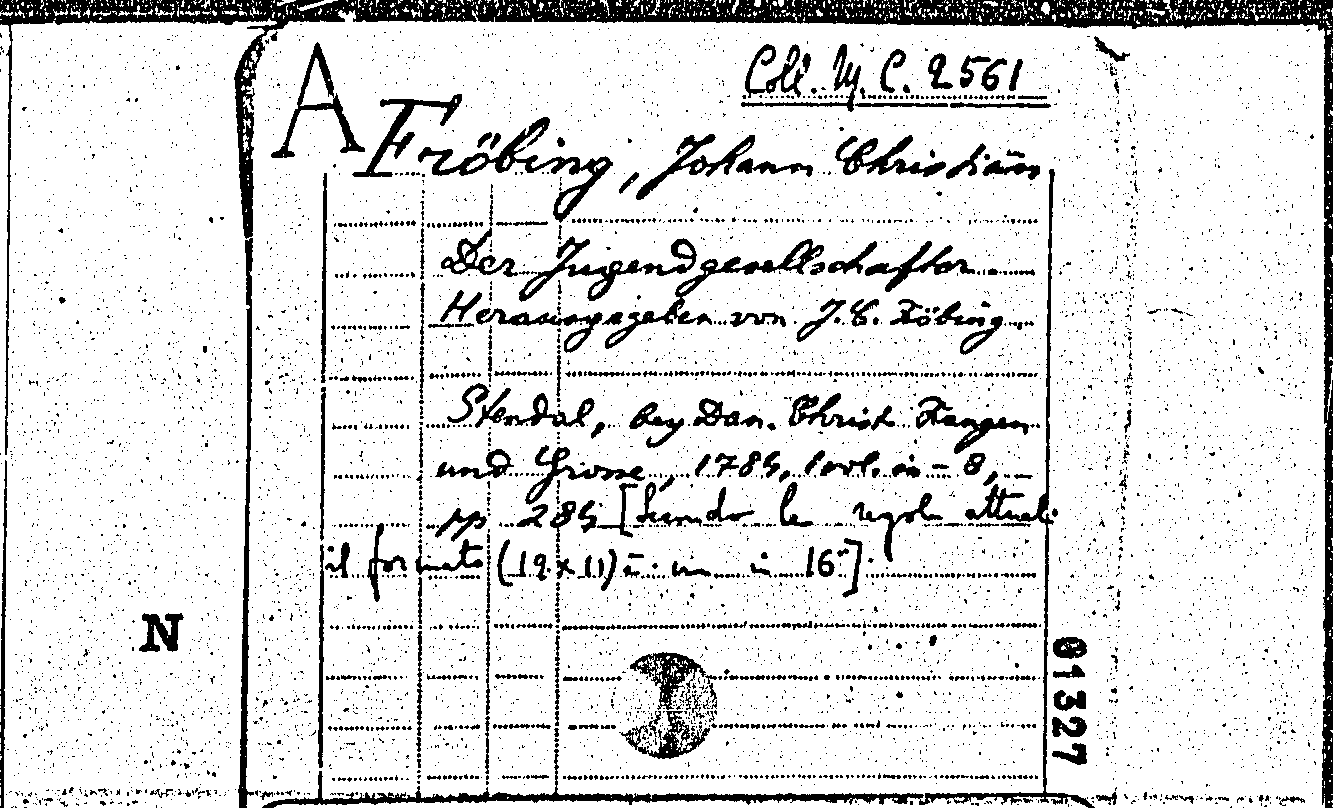 A
Coll. M. C. 2561
Fröbing, Johann Christian
Der Jugendgesellschafter.
Herausgegeben von J. C. Föbing
Stendal, bey Dan. Christ
und Grosse, 1785, 1 vol. in-8,
pp 285 [Secondo le regole attuali
il formato (19 x 11) è in 16°].
N
01327